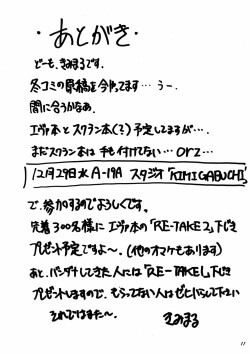 ・あとがき・
どーも、きみまるです。
冬コミの原稿を今やってます… うー。
間に合うかなぁ。
エヴァ本とスクラン本(?)予定してますが…。
まだスクラン本は手も付けてない… orz…
12月29日水 A-19A スタジオ「KIMIGABUCHI」
で、参加するのでよろしくです。
先着300名様にエヴァ本の「RE-TAKE2」下じき
プレゼント予定ですよ〜。(他のオマケもあります)
あと、してきた人には「RE-TAKE1」下じき
プレゼントしますので、もらってない人はぜひいらして下さい
それではまた〜。
きみまる